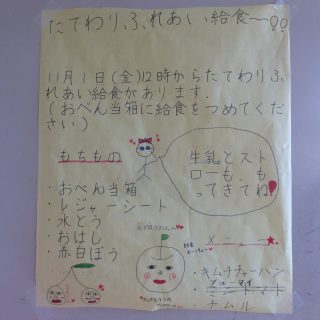 たてわりふれあい給食〜
11月1日(金)12時からたてわりふ
れあい給食があります.
(おべん当箱に給食をつめてくだ
さい)
もちもの
・おべん当箱
・レジャーシート
・水とう
・おはし
・赤白ぼう
牛乳とスト
ローも、も
ってきてね!
メニュー
・キムチチャーハン
・シューマイ
・ナムル